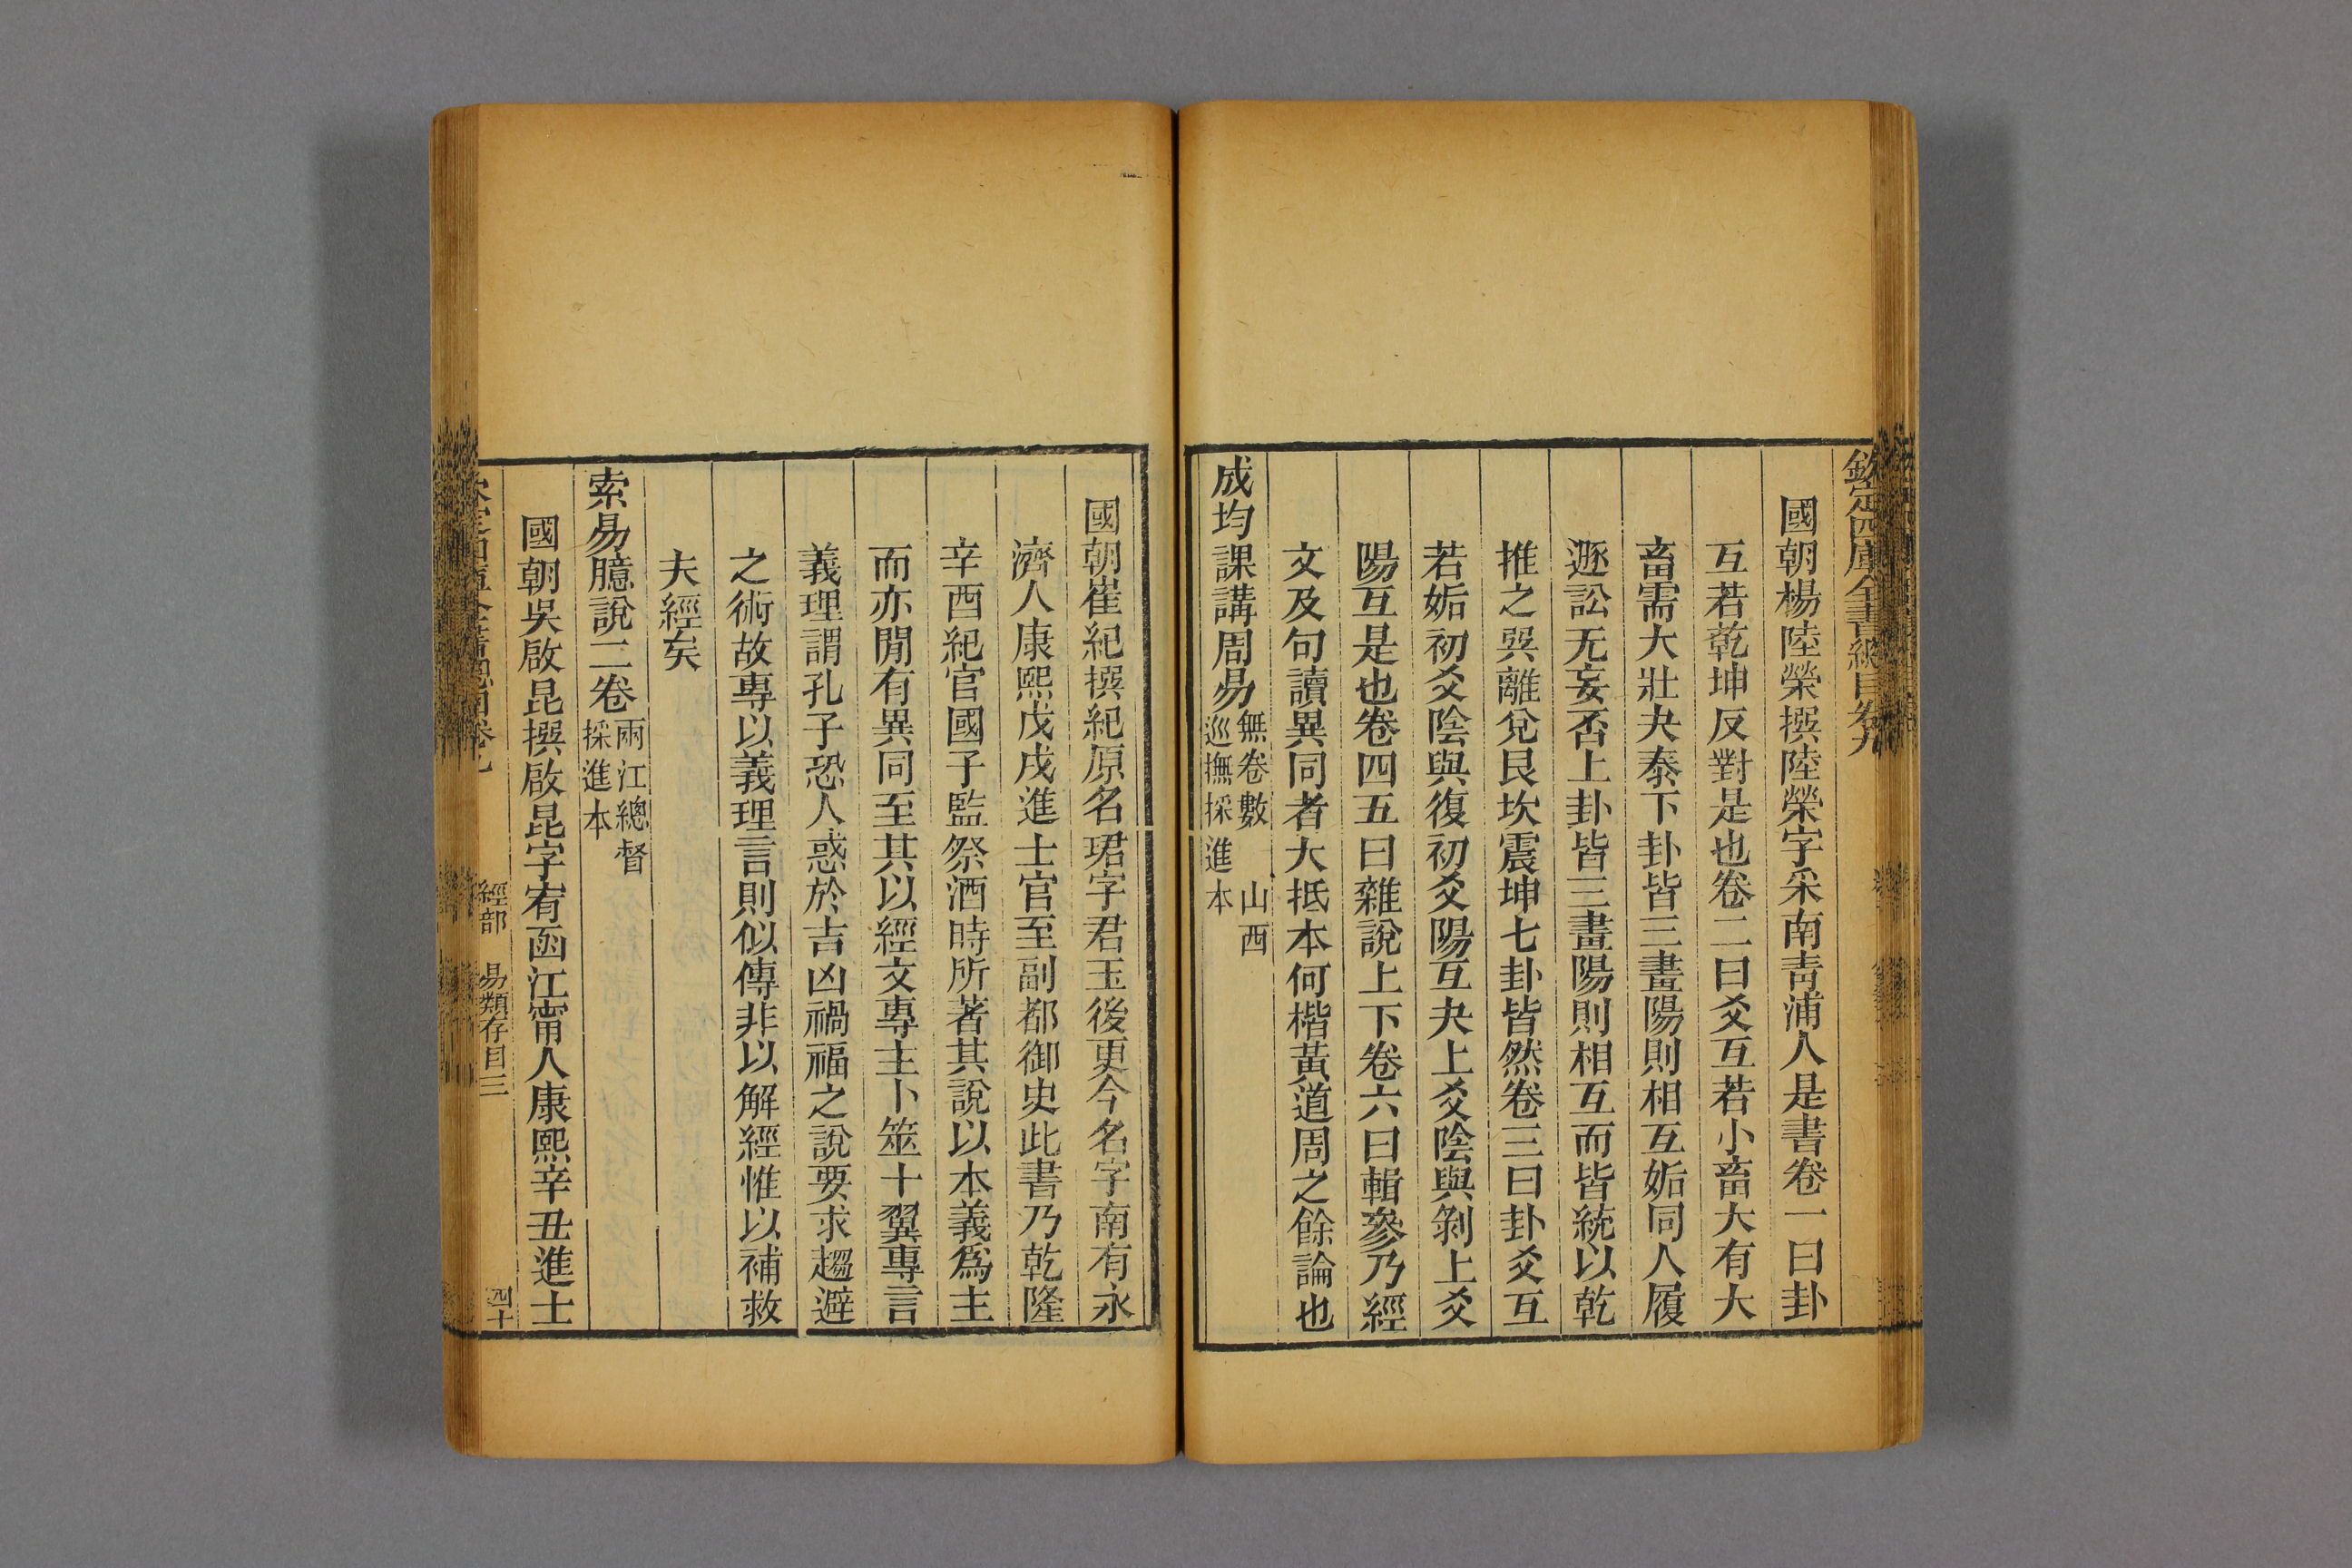 欽定四庫全書總目卷九
國朝楊陸榮撰陸榮字采南靑浦人是書卷一曰卦
互若乾坤反對是也卷二曰爻互若小畜大有大
畜需大壯夬泰下卦皆三畫陽則相互姤同人履
遯訟无妄否上卦皆三畫陽則相互而皆統以乾
推之巽離兌艮坎震坤七卦皆然卷三曰卦爻互
若姤初爻陰與復初爻陽互夬上爻陰與剝上爻
陽互是也卷四五曰雜說上下卷六曰輯參乃經
文及句讀異同者大抵本何楷黃道周之餘論也
成均課講周易無卷數 山西巡撫採進本
國朝崔紀撰紀原名珺字君玉後更今名字南有永
濟人康熙戊戌進士官至副都御史此書乃乾隆
辛酉紀官國子監祭酒時所著其說以本義爲主
而亦閒有異同至其以經文專主卜筮十翼專言
義理謂孔子恐人惑於吉凶禍福之說要求趨避
之術故專以義理言則似傳非以解經惟以補救
夫經矣
索易臆說二卷兩江總督採進本
國朝吳啟昆撰啟昆字宥函江甯人康熙辛丑進士
經部 易類存目三 四十